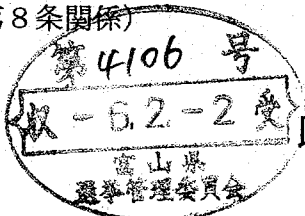 第８条関係）
第4106号
収 -6.2.-2 受
富山県
選挙管理委員会